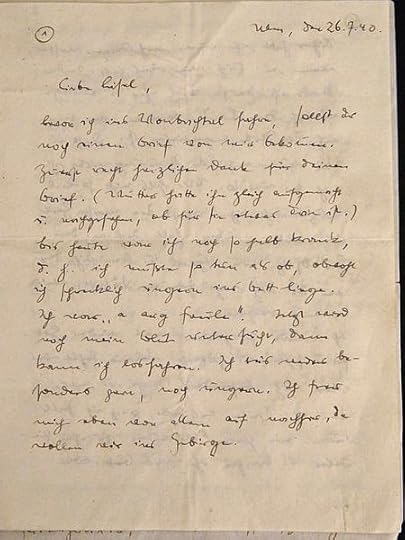 1
Ulm, den 26.7.40.
Liebe Lisel,
bevor ich ins Wonbichtal fahre, sollst du
noch einen Brief von mir bekommen.
Zuerst recht herzlichen Dank für deinen
Brief. (Mutter hatte ihn gleich aufgemacht
u. nachgesehen, ob für sie etwas drin ist.)
bis heute war ich noch so halb krank,
d. h. ich mußte so tun als ob, obwohl
ich schrecklich ungern im bett liege.
Ich war „a arg faule". Jetzt wird
noch mein blut untersucht, dann
kann ich losfahren. Ich tu's weder be-
sonders gern, noch ungern. Ich freu
mich eben vor allem auf nachher, da
wollen wir ins Gebirge.